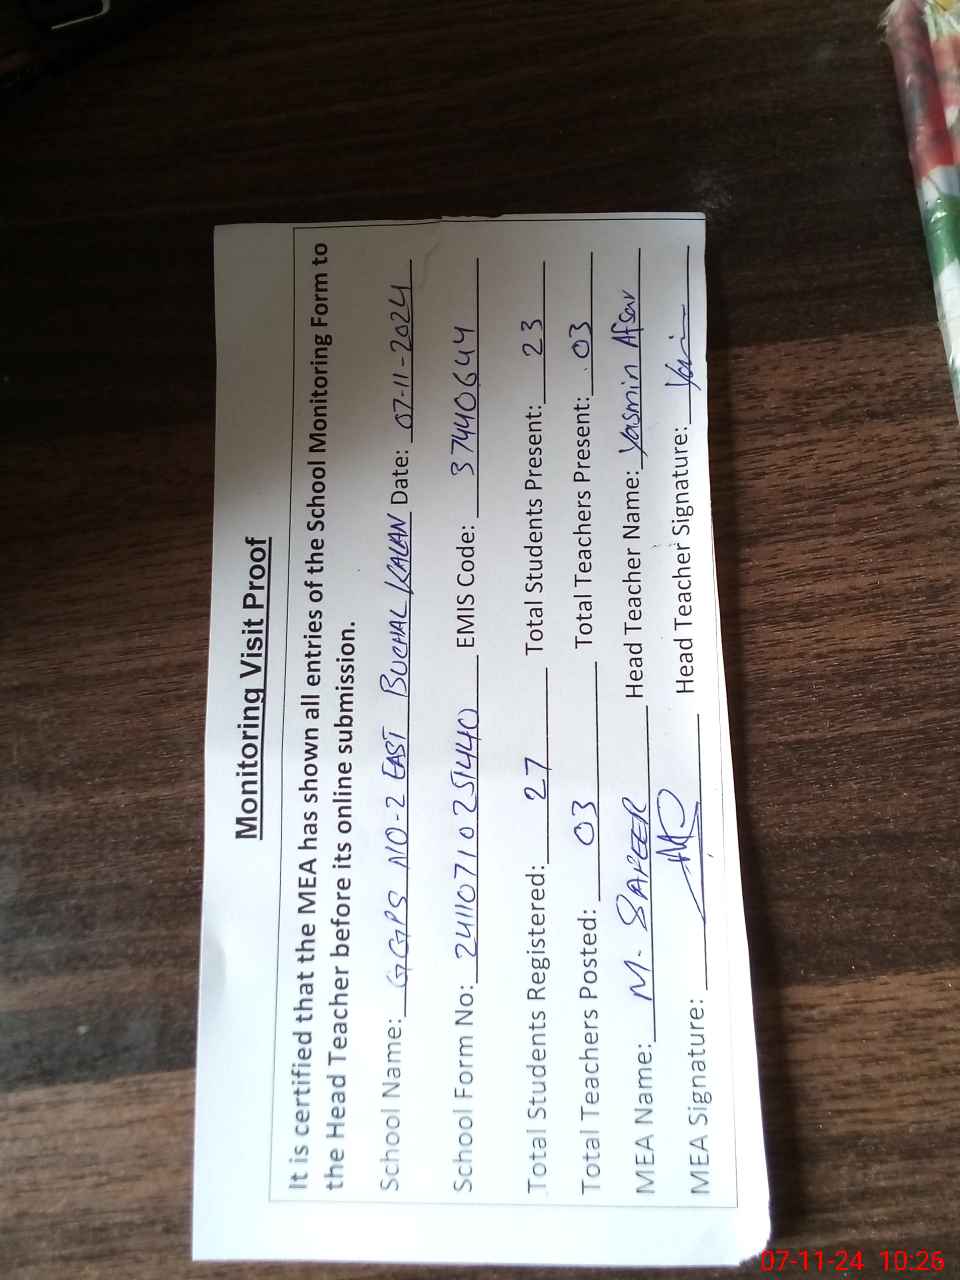 Monitoring Visit Proof
It is certified that the MEA has shown all entries of the School Monitoring Form to
the Head Teacher before its online submission.
School Name: GGPS NO-2 EAST BUCHAL KALAN Date: 07-11-2024
School Form No: 24110710251440 EMIS Code: 37440644
Total Students Registered: 27 Total Students Present: 23
Total Teachers Posted: 03 Total Teachers Present: 03
MEA Name: M. SAFEER Head Teacher Name: Yasmin Afsar
MEA Signature: Head Teacher Signature:
07-11-24 10:26